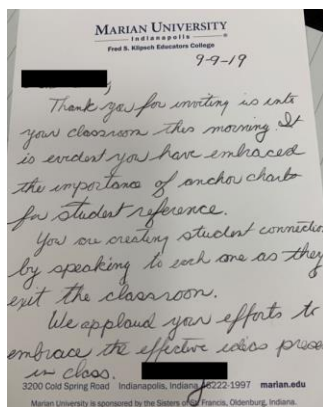 MARIAN UNIVERSITY
Indianapolis
Fred S. Klipsch Educators College
9-9-19
Thank you for inviting us into
your classroom this morning. It
is evident you have embraced
the importance of anchor charts
for student reference.
You are creating student connection
by speaking to each one as they
exit the classroom.
We applaud your efforts to
embrace the effective ideas
in class.
3200 Cold Spring Road Indianapolis, Indiana 46222-1997 marian.edu
Marian University is sponsored by the Sisters of St. Francis, Oldenburg, Indiana.